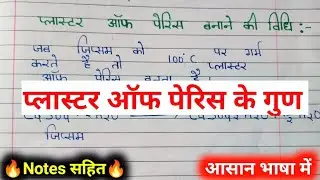 प्लास्टर ऑफ पेरिस बनाने की विधि :-
जब जिप्सम को 100°C पर गर्म
करते हैं तो प्लास्टर
प्लास्टर ऑफ पेरिस के गुण
जिप्सम
🔥Notes सहित🔥
आसान भाषा में